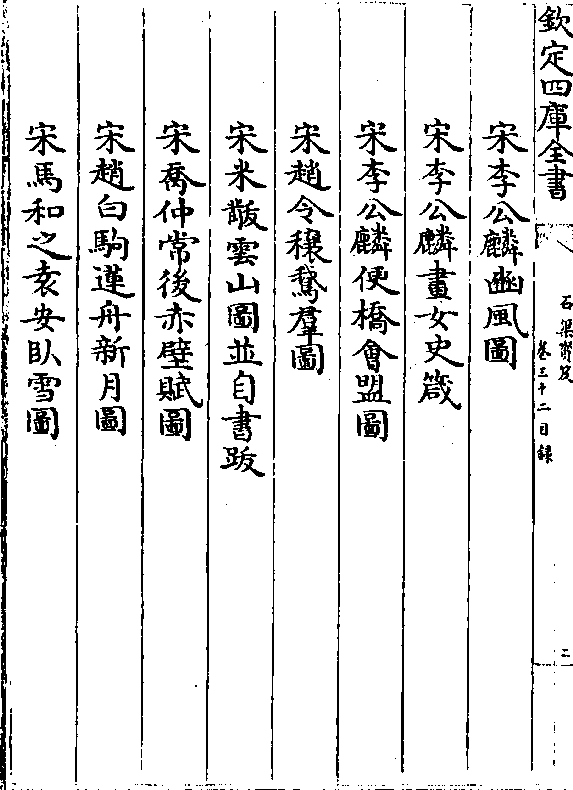 欽定四庫全書
石渠寶笈
卷三十二目録
二
宋李公麟豳風圖
宋李公麟畫女史箴
宋李公麟便橋會盟圖
宋趙令穰鵞羣圖
宋米黻雲山圖並自書跋
宋喬仲常後赤壁賦圖
宋趙白駒蓮舟新月圖
宋馬和之袁安臥雪圖